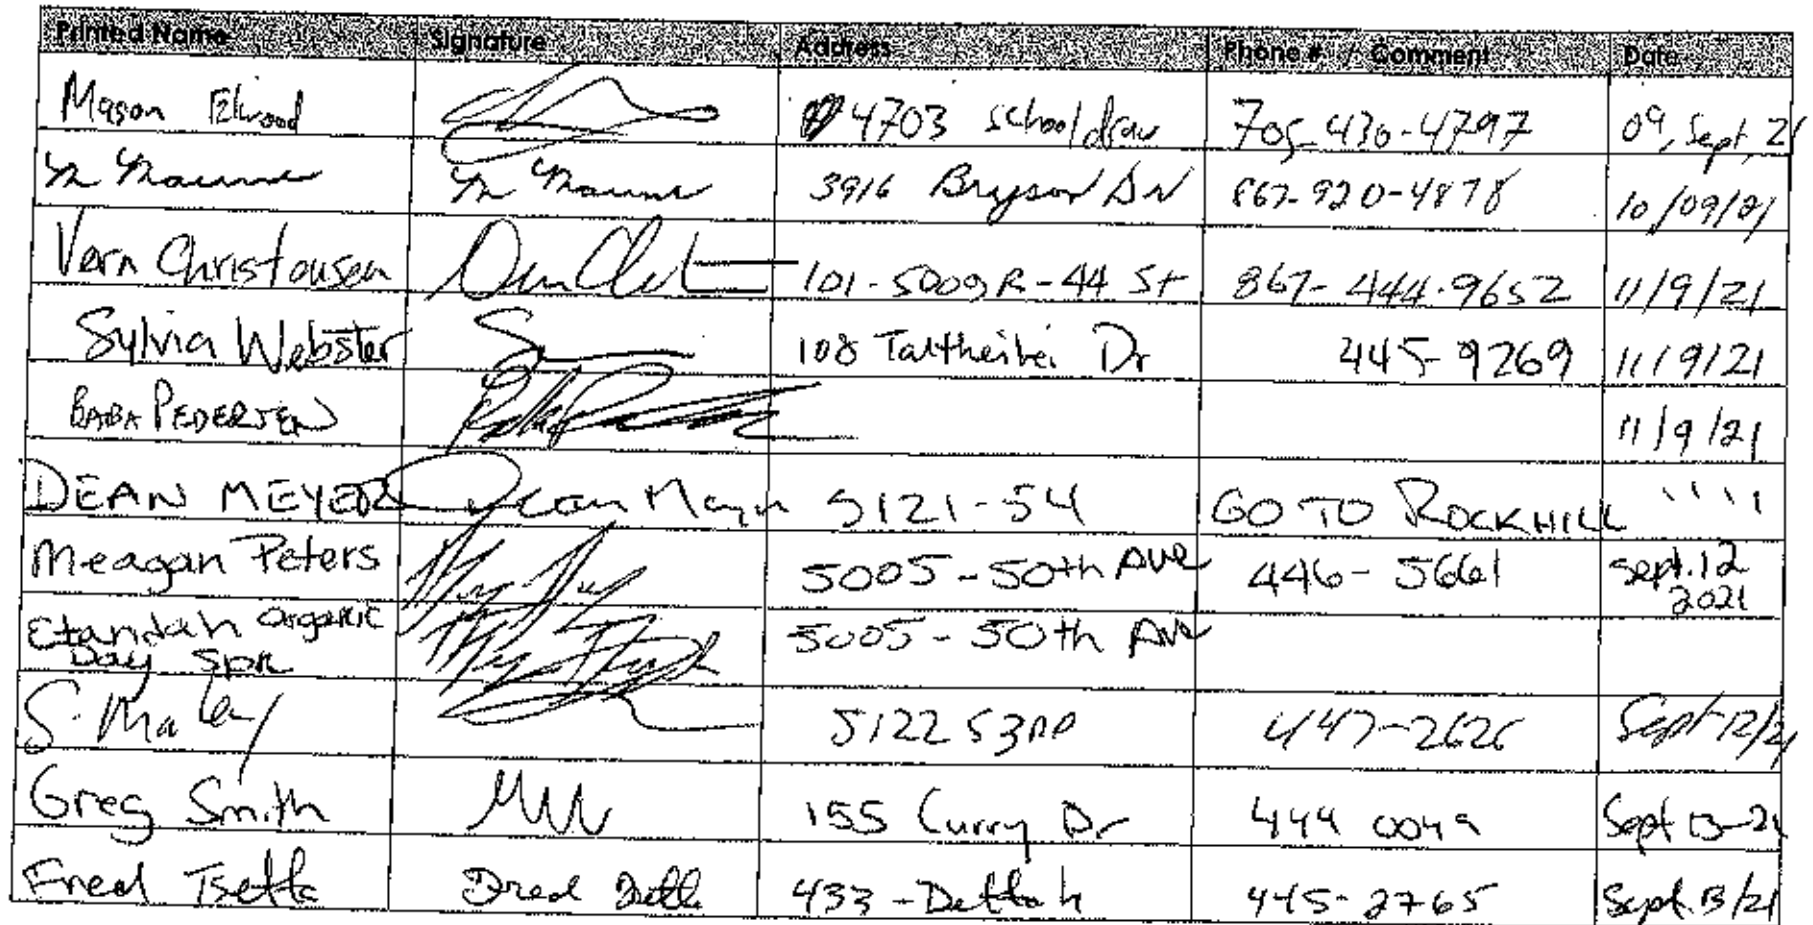 Printed Name Signature Address Phone # / Comment Date
Mason Elwood 4703 school draw 705-430-4797 09, Sept, 21
3916 Bryson Dr 867-920-4878 10/09/21
Vern Christensen 101-5009R-44 St 867-444-9652 11/9/21
Sylvia Webster 108 Taltheilei Dr 445-9269 11/9/21
BABA PEDERSEN 11/9/21
DEAN MEYER Dean Meyer 5121-54 GO TO ROCKHILL " "
Meagan Peters 5005-50th Ave 446-5661 Sept. 12
2021
Etandah Organic 5005-50th Ave
Day Spa
5122 53RD 447-2626 Sept 12/21
Greg Smith 155 Curry Dr 444 0049 Sept 13-21
Fred Tsetta Fred Tsetta 433-Dettah 445-2765 Sept. 13/21